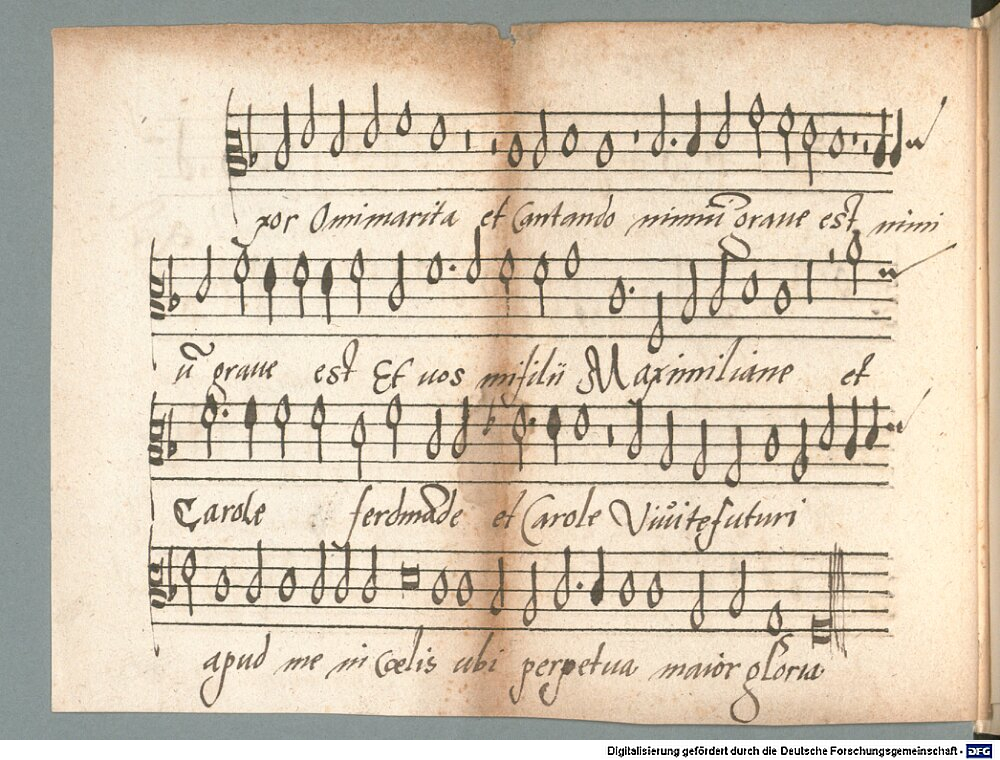 xor O mi marita et Cantando nimiū graue est nimi
ū graue est Et uos mi filii Maximiliane et
Carole ferdināde et Carole Viuite futuri
apud me in Cœlis ubi perpetua maior gloria
Digitalisierung gefördert durch die Deutsche Forschungsgemeinschaft - DFG